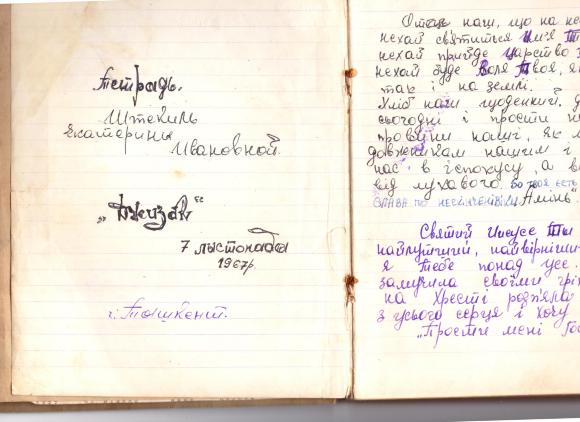 Тетрадь.
Штекиль
Екатерины
Ивановной.
„Джизак“
7 листопада
1967р.
г. Ташкент.
Отче наш, що на не
нехай святиться Им'я Т
нехай прийде Царство
нехай буде Воля Твоя, я
так і на землі.
Хліб наш щоденний, д
сьогодні і прости н
провини наші, як
довжникам нашим і
нас в іспокусу, а в
від лукавого. Бо твоя есть
СЛАВА по Амінь"
Святий Иисусе Ти
найлутший, найвірніши
я Тебе понад усе.
своїми грі
на Хресті розп'яла
з усього серця і хочу
„Прости мені Гос